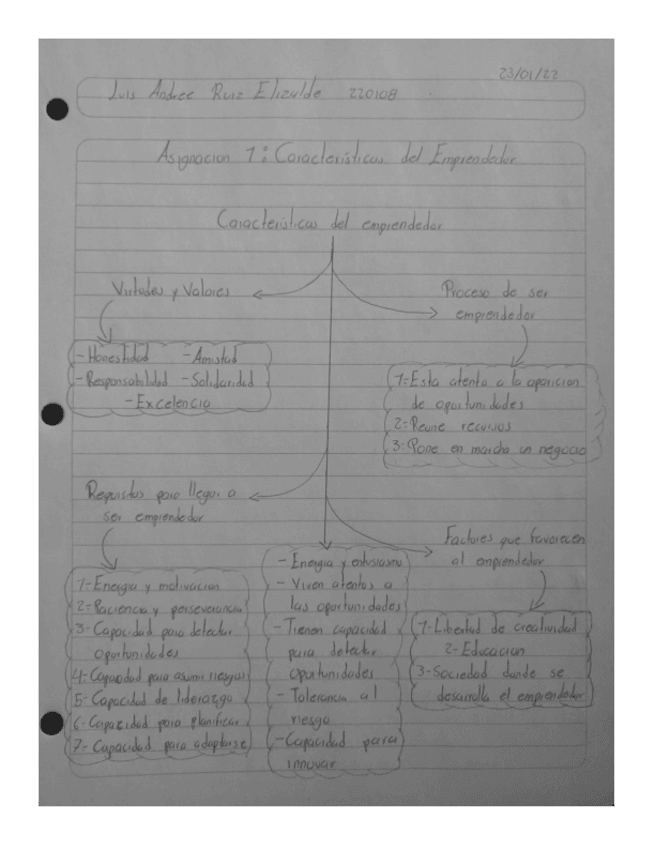 23/01/22
Luis Andree Ruiz Elizalde 220108
Asignacion 1: Características del Emprendedor
Características del emprendedor
Virtudes y Valores
- Honestidad - Amistad
- Responsabilidad - Solidaridad
- Excelencia
Proceso de ser
emprendedor
1= Esta atento a la aparicion
de oportunidades
2= Reune recursos
3= Pone en marcha un negocio
Requisitos para llegar a
ser emprendedor
1- Energia y motivacion
2= Paciencia y perseverancia
3- Capacidad para detectar
oportunidades
4- Capacidad para asumir riesgos
5- Capacidad de liderazgo
6- Capacidad para planificar
7- Capacidad para adaptarse
- Energia y entusiasmo
- Viven atentos a
las oportunidades
- Tienen capacidad
para detectar
oportunidades
- Tolerancia al
riesgo
- Capacidad para
innovar
Factores que favorecen
al emprendedor
1- Libertad de creatividad
2- Educacion
3- Sociedad donde se
desarrolla el emprendedor